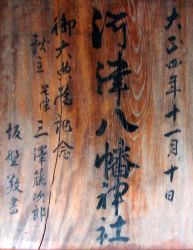 大正四年十一月十日
河津八幡神社
御大典落記念
献立 笹原 三澤藤次郎
坂野敬書